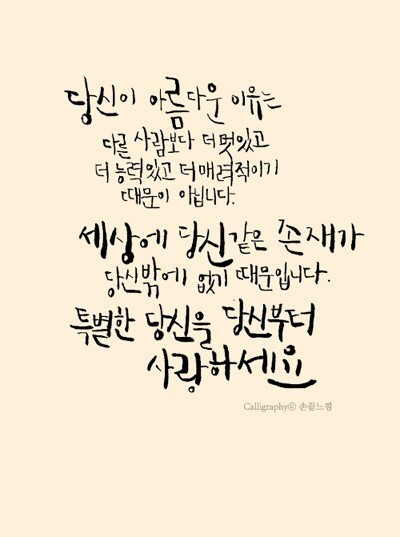 당신이 아름다운 이유는
다른 사람보다 더 멋있고
더 능력있고 더 매력적이기
때문이 아닙니다.
세상에 당신같은 존재가
당신밖에 없기 때문입니다.
특별한 당신을 당신부터
사랑하세요
Calligraphyⓒ 손끝느낌